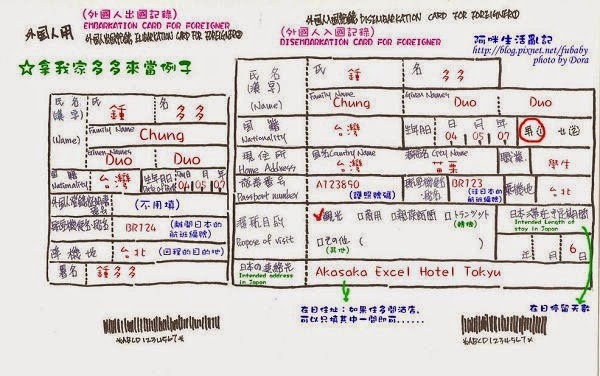 外國人用
(外國人出國記錄)
EMBARKATION CARD FOR FOREIGNER
外國人出國記錄 EMBARKATION CARD FOR FOREIGNER
☆拿我家多多來當例子
氏名 (漢字) 鍾 名 多多
(Name) Family Name
Chung
Given Names
Duo Duo
國籍 Nationality 台灣 生年月日 Date of Birth 日 月 年
04 05 07
(不用填)
航空機便名・船名 BR724 (離開日本的航班編號)
降機地 台北 (回程的目的地)
署名 鍾多多
*ABCD1234567*
外國人入國記錄 DISEMBARKATION CARD FOR FOREIGNER
(外國人入國記錄)
DISEMBARKATION CARD FOR FOREIGNER
阿咪生活亂記
http://blog.pixnet.net/fubaby
photo by Dora
氏名 (漢字) 氏 鍾 名 多多
(Name) Family Name Given Names
Chung Duo Duo
國籍 Nationality 台灣 生年月日 日 月 年
04 05 07 男① 女②
現住所 Home Address 國名Country Name 台灣 都市名City Name 苗栗 職業 學生
旅券番号 Passport number A123890 (護照號碼) 航空機便名・船名 BR723 (往日本的航班編號) 乘機地 台北
渡航目的 Purpose of visit ☑觀光 □商用 □親族訪問 □トランジット (轉機)
□その他 (其他) ( )
日本滯在予定期間
Intended Length of stay in Japan
年 月 6日
日本の連絡先 Intended address in Japan Akasaka Excel Hotel Tokyu
在日住址：如果住多間酒店,
可以只填其中一間即可......
在日停留天數
*ABCD1234567*